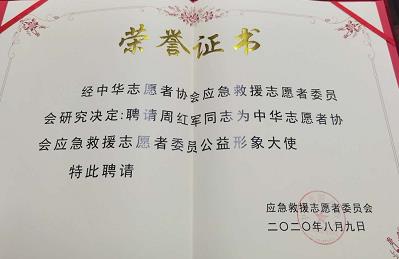 荣誉证书
经中华志愿者协会应急救援志愿者委员
会研究决定:聘请周红军同志为中华志愿者协
会应急救援志愿者委员公益形象大使
特此聘请
应急救援志愿者委员会
二〇二〇年八月九日